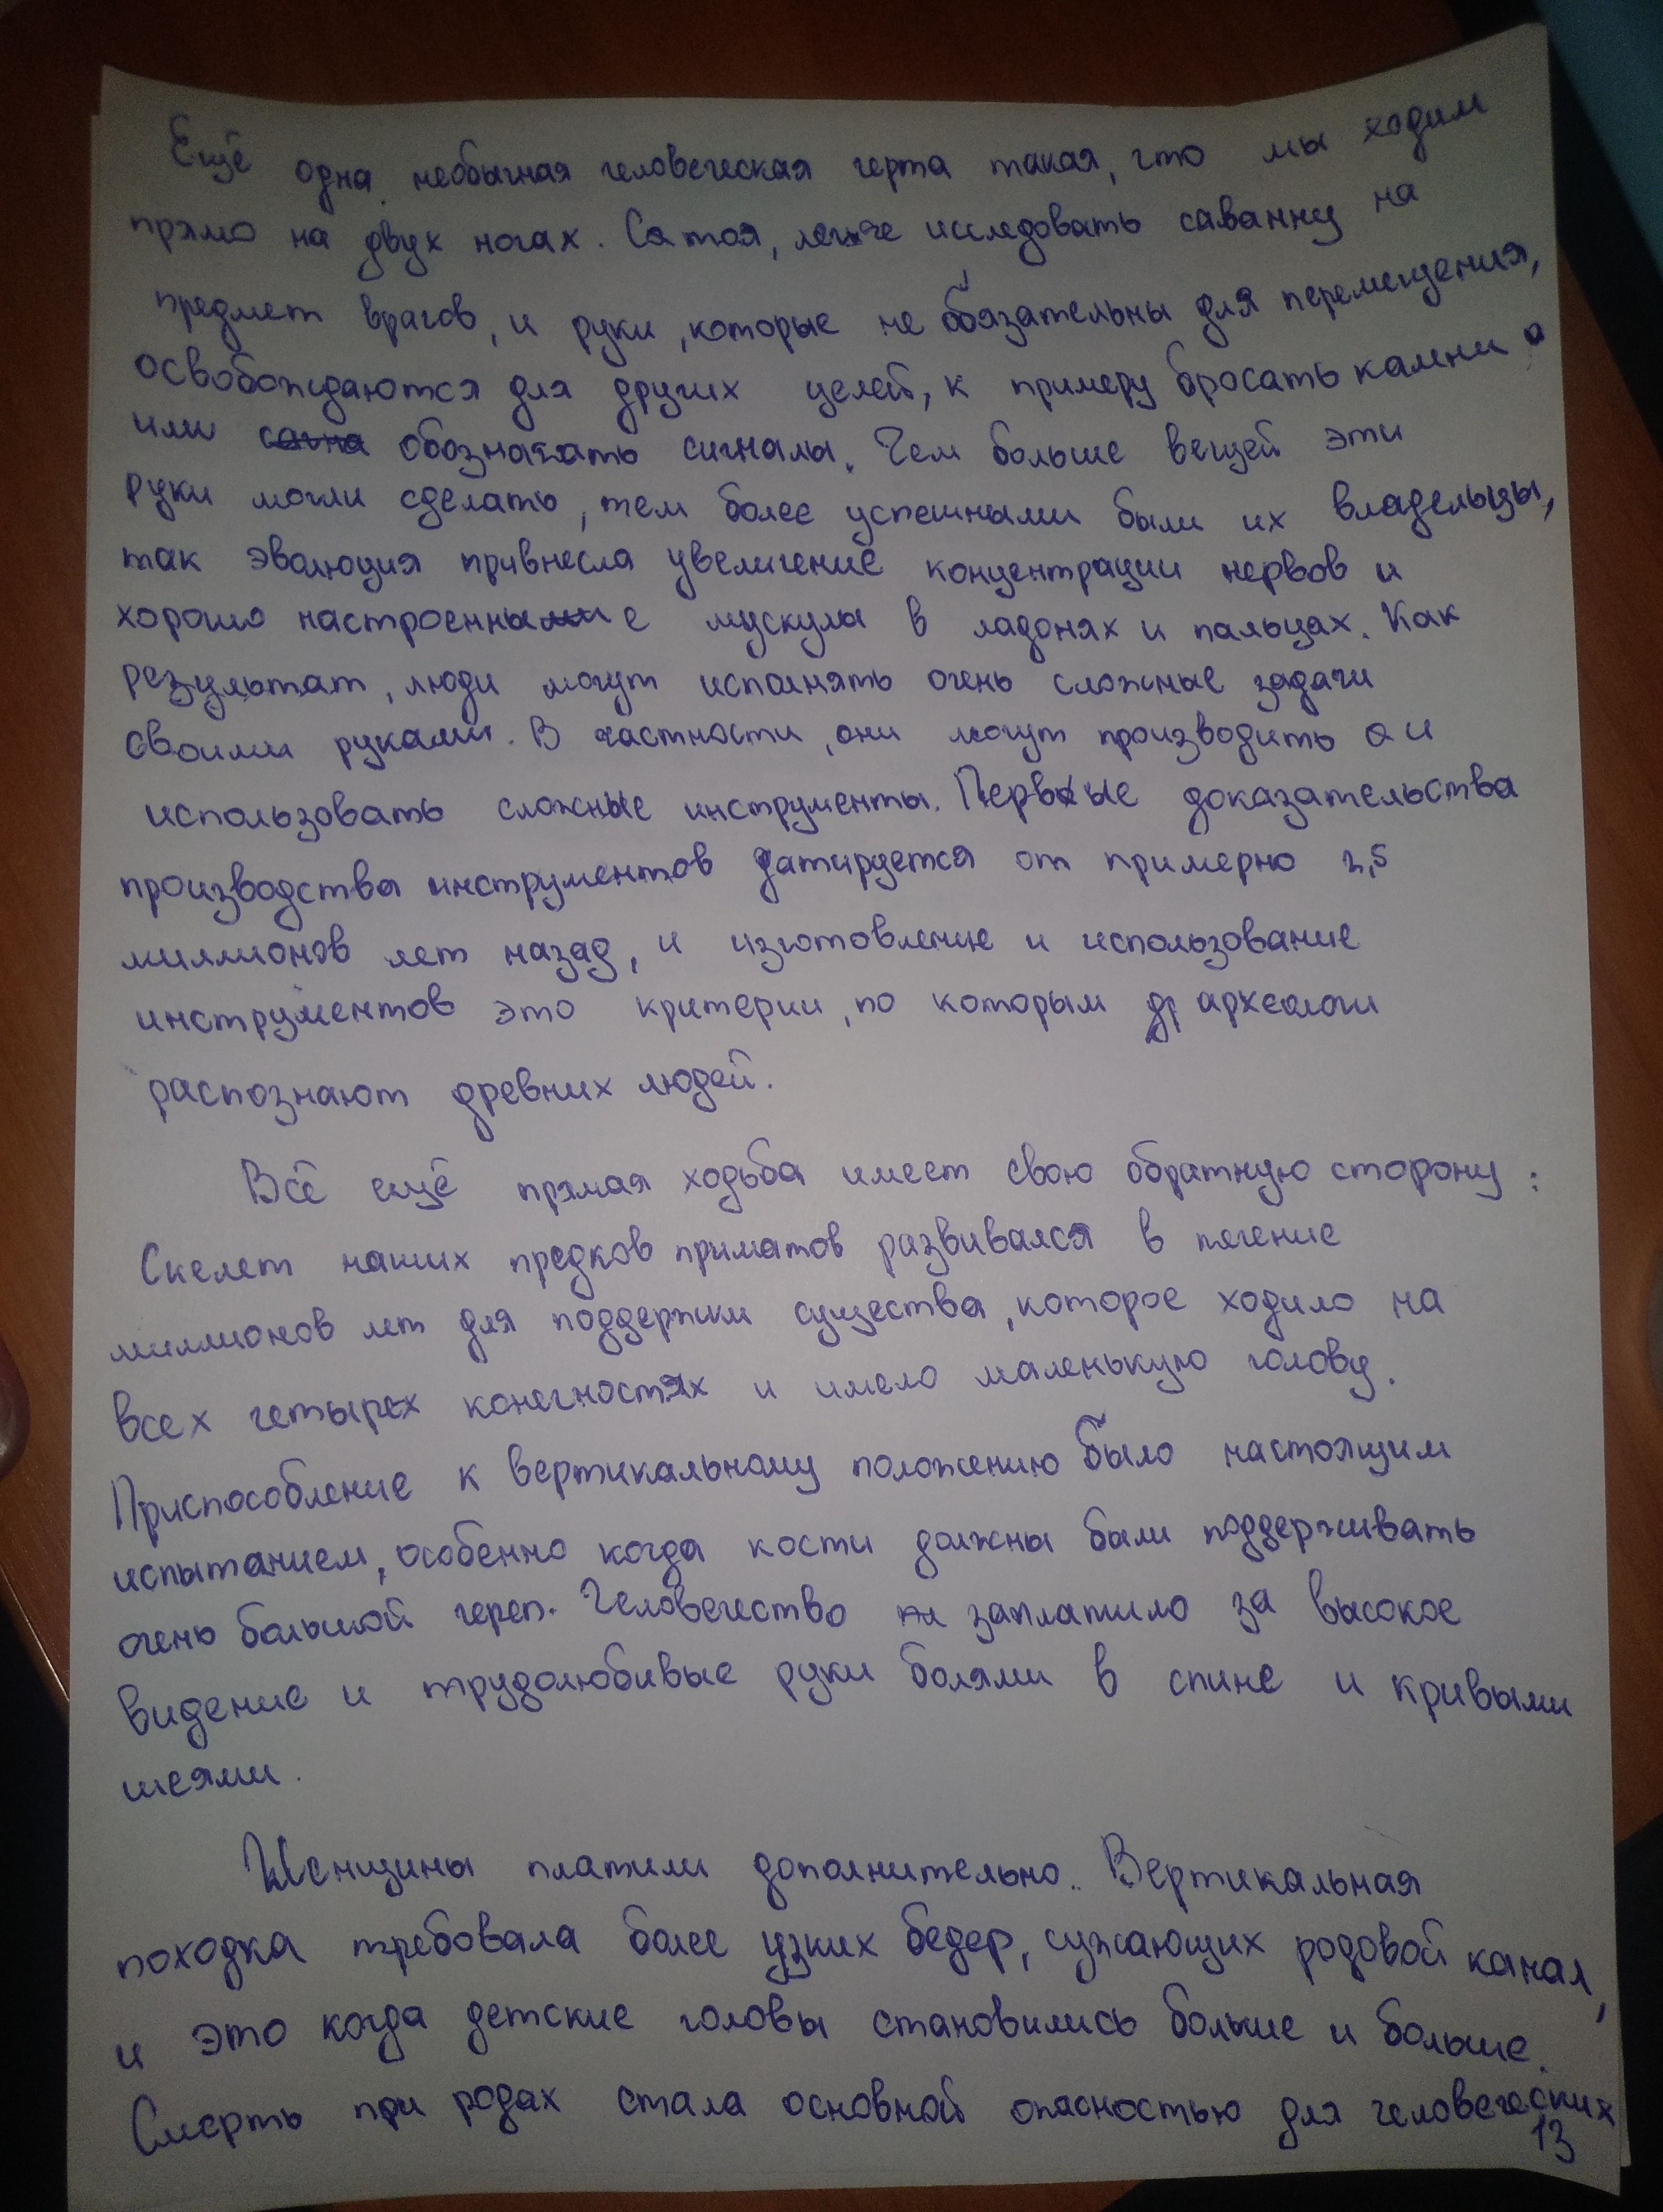 Ещё одна необычная человеческая черта такая, что мы ходим
прямо на двух ногах. Стоя, легче исследовать саванну на
предмет врагов, и руки, которые не обязательны для перемещения,
освобождаются для других целей, к примеру бросать камни
или обозначать сигналы. Чем больше вещей эти
руки могли сделать, тем более успешными были их владельцы,
так эволюция привнесла увеличение концентрации нервов и
хорошо настроенные мускулы в ладонях и пальцах. Как
результат, люди могут исполнять очень сложные задачи
своими руками. В частности, они могут производить и
использовать сложные инструменты. Первые доказательства
производства инструментов датируется от примерно 2,5
миллионов лет назад, и изготовление и использование
инструментов это критерии, по которым археологи
распознают древних людей.
Всё ещё прямая ходьба имеет свою обратную сторону:
Скелет наших предков приматов развивался в течение
миллионов лет для поддержки существа, которое ходило на
всех четырех конечностях и имело маленькую голову.
Приспособление к вертикальному положению было настоящим
испытанием, особенно когда кости должны были поддерживать
очень большой череп. Человечество заплатило за высокое
видение и трудолюбивые руки болями в спине и кривыми
шеями.
Женщины платили дополнительно. Вертикальная
походка требовала более узких бедер, сужающих родовой канал,
и это когда детские головы становились больше и больше.
Смерть при родах стала основной опасностью для человеческих
13